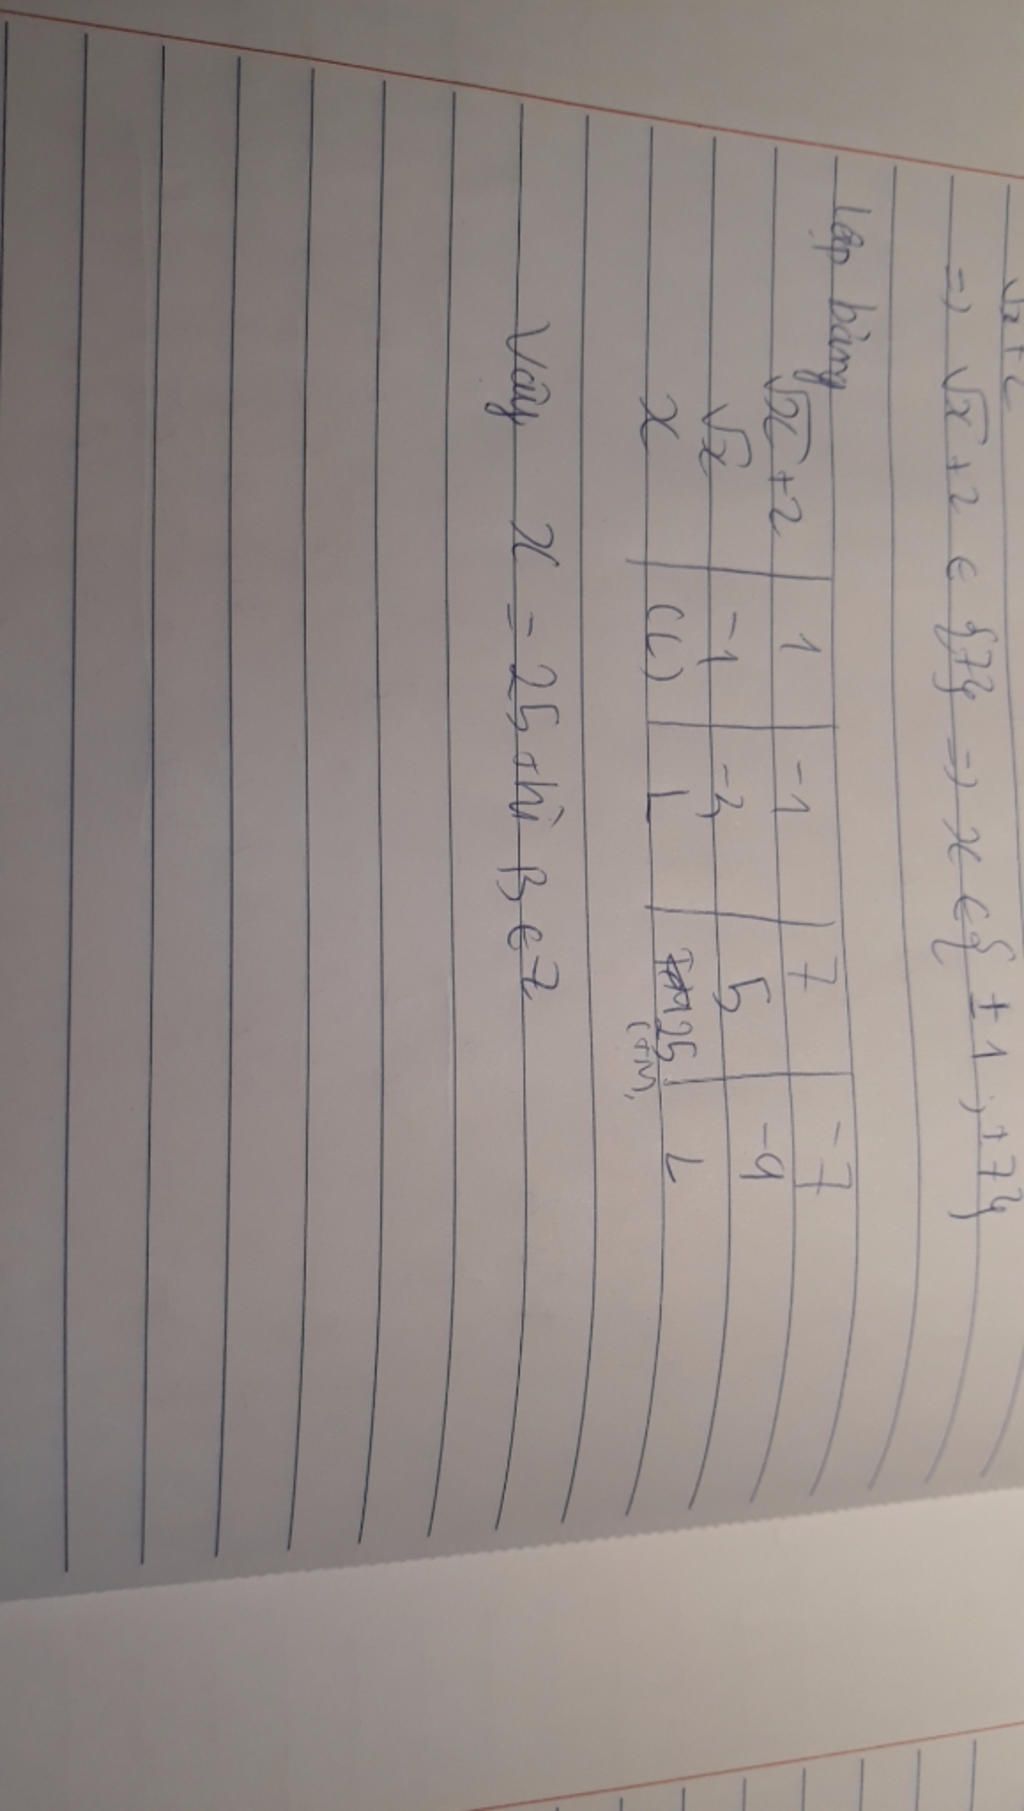 √x + 2
=> √x + 2 ∈ {7} => x ∈ { ± 1 , ±7}
Lập bảng
√x + 2 | 1 | -1 | 7 | -7
√x | -1 | -3 | 5 | -9
x | (L) | L | 25 (TM) | L
Vậy x = 25 thì B ∈ Z